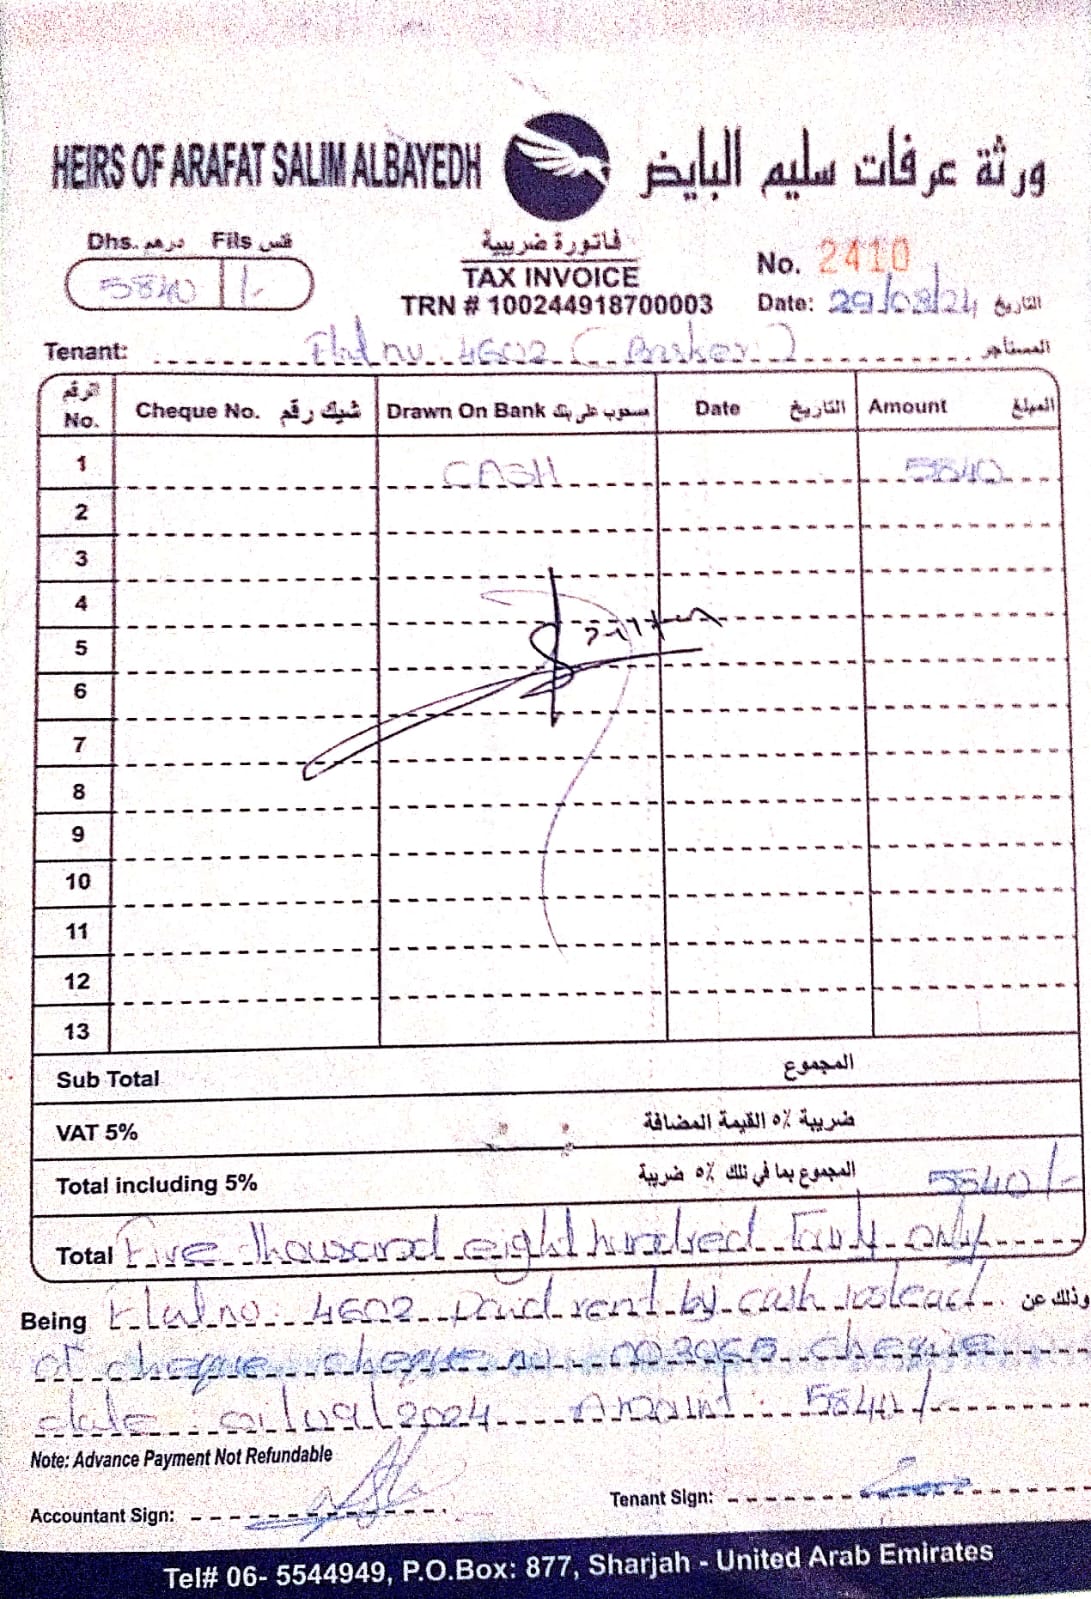 HEIRS OF ARAFAT SALIM ALBAYEDH ورثة عرفات سليم البايض
Dhs. درهم Fils فلس
5840 /-
فاتورة ضريبية
TAX INVOICE
TRN # 100244918700003
No. 2410
Date: 29/08/24 التاريخ
Tenant: Flat no 4602 (Basker) المستأجر
الرقم No. Cheque No. شيك رقم Drawn On Bank مسحوب على بنك Date التاريخ Amount المبلغ
1 CASH 5840
2
3
4
5
6
7
8
9
10
11
12
13
Sub Total المجموع
VAT 5% ضريبة ٥٪ القيمة المضافة
Total including 5% المجموع بما في ذلك ٥٪ ضريبة 5840/-
Total Five thousand eight hundred Fourty only
Being Flat no. 4602 paid rent by cash instead وذلك عن
of cheque cheque no cheque
date 2024 Amount: 5840/-
Note: Advance Payment Not Refundable
Accountant Sign:
Tenant Sign:
Tel# 06- 5544949, P.O.Box: 877, Sharjah - United Arab Emirates